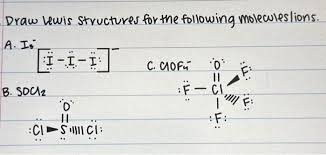 Draw Lewis Structures for the following molecules/ions.
A. I₃⁻
[:I-I-I:]⁻
C. ClOF₄⁻
O
F:
:F-Cl
F:
:F:
B. SOCl₂
O
:Cl S Cl: